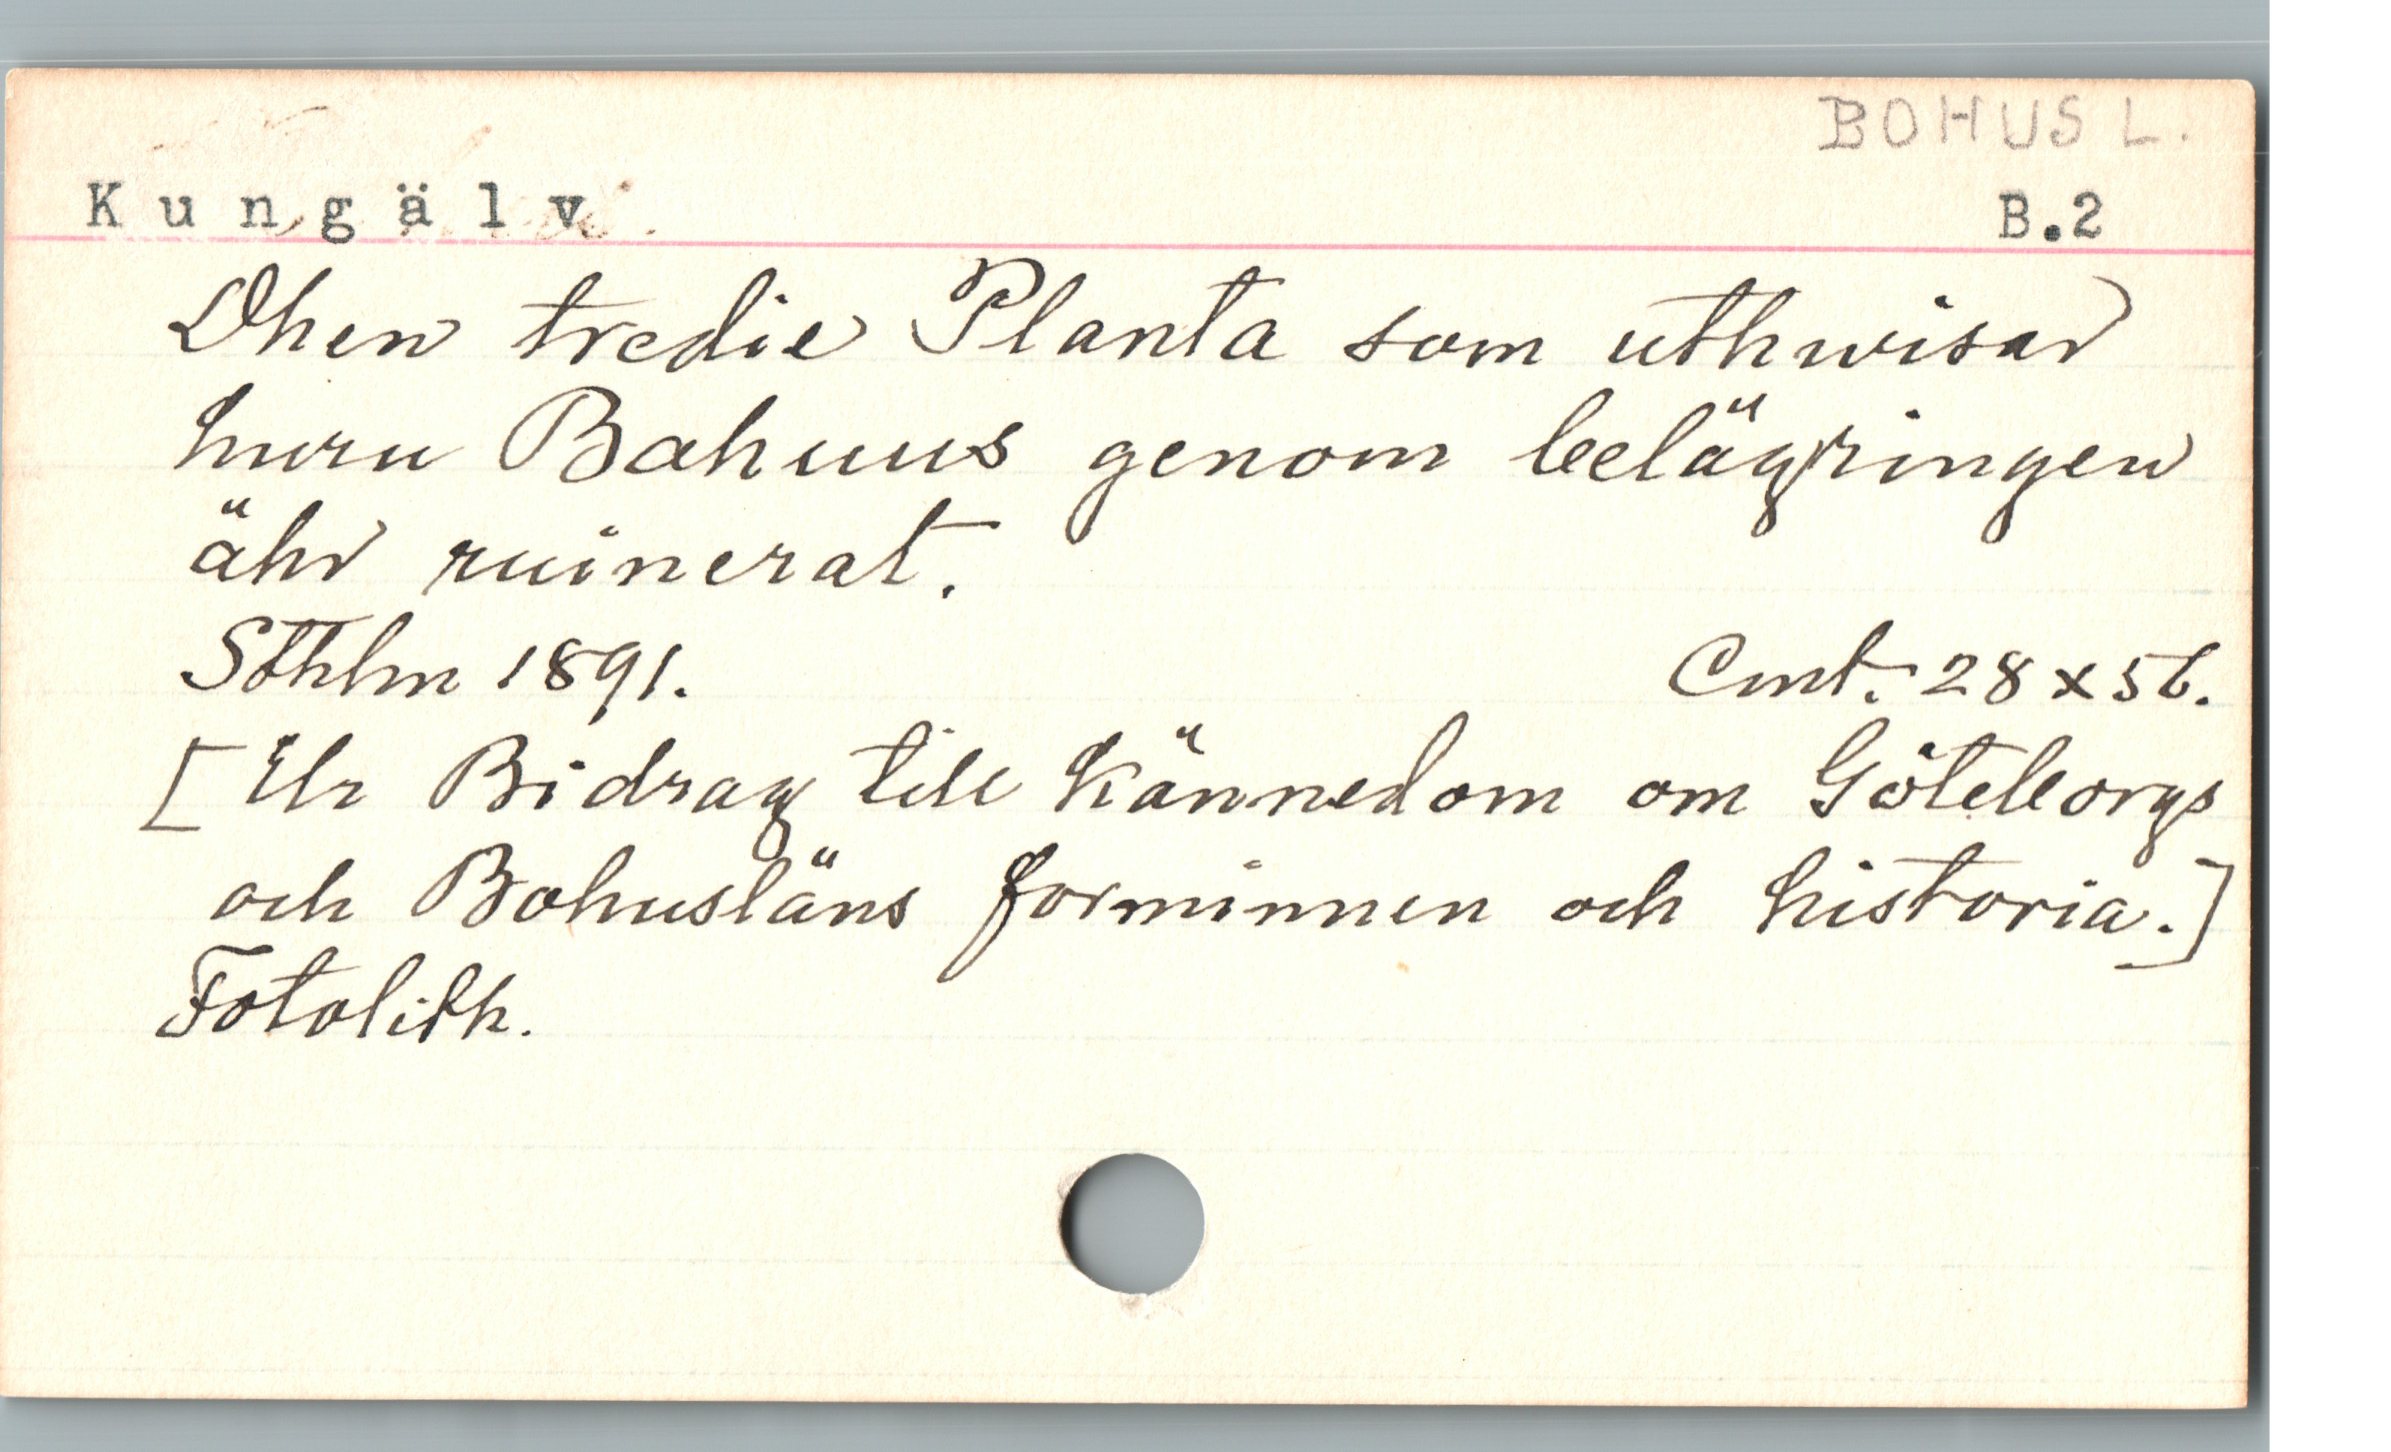 BOHUS L.
Kungälv. B.2
Dhen tredie Planta som uthwisar
huru Bahuus genom belägringen
ähr ruinerat.
Sthlm 1891. Cmt. 28 x 56.
[Ur Bidrag till kännedom om Göteborgs
och Bohusläns fornminnen och historia.]
Fotolith.